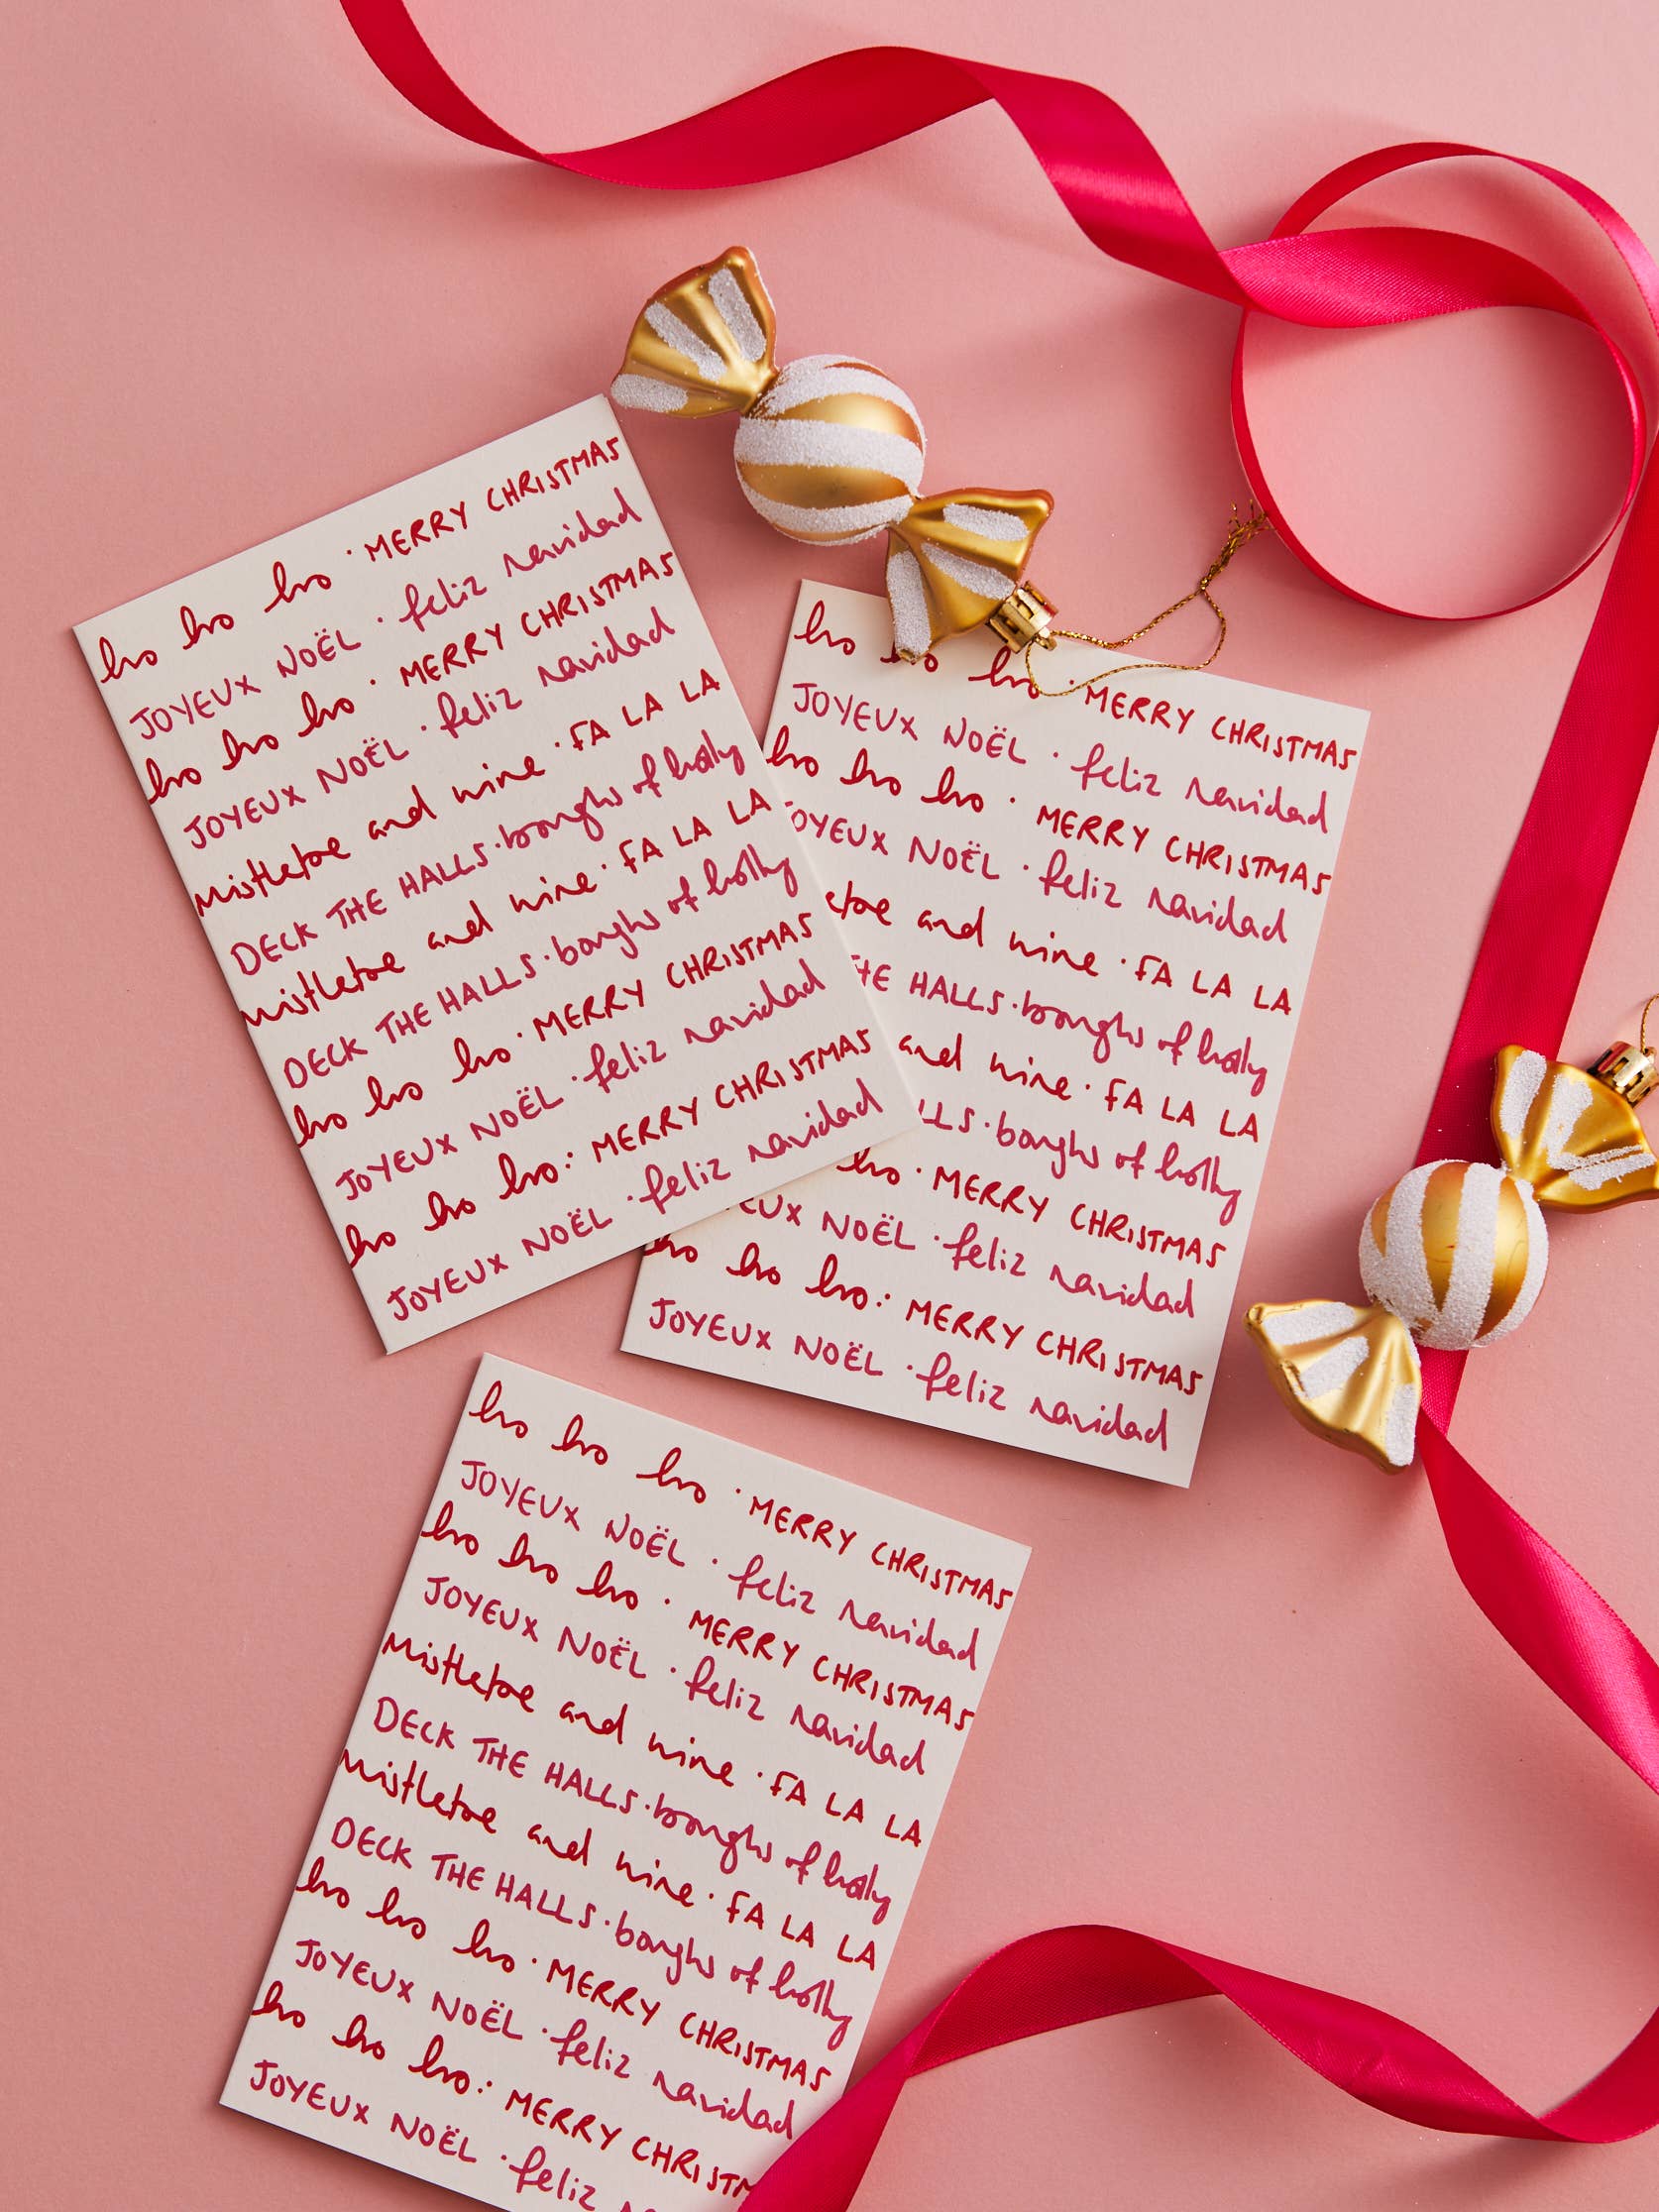 ho ho ho · MERRY CHRISTMAS
JOYEUX NOËL · feliz navidad
ho ho ho · MERRY CHRISTMAS
JOYEUX NOËL · feliz navidad
mistletoe and wine · FA LA LA
DECK THE HALLS · boughs of holly
mistletoe and wine · FA LA LA
DECK THE HALLS · boughs of holly
ho ho ho · MERRY CHRISTMAS
JOYEUX NOËL · feliz navidad
ho ho ho : MERRY CHRISTMAS
JOYEUX NOËL · feliz navidad
ho ho ho · MERRY CHRISTMAS
JOYEUX NOËL · feliz navidad
ho ho ho · MERRY CHRISTMAS
OYEUX NOËL · feliz navidad
etoe and wine · FA LA LA
HE HALLS · boughs of holly
and wine · FA LA LA
LLS · boughs of holly
ho · MERRY CHRISTMAS
EUX NOËL · feliz navidad
ho ho ho : MERRY CHRISTMAS
JOYEUX NOËL · feliz navidad
ho ho ho · MERRY CHRISTMAS
JOYEUX NOËL · feliz navidad
ho ho ho · MERRY CHRISTMAS
JOYEUX NOËL · feliz navidad
mistletoe and wine · FA LA LA
DECK THE HALLS · boughs of holly
mistletoe and wine · FA LA LA
DECK THE HALLS · boughs of holly
ho ho ho · MERRY CHRISTMAS
JOYEUX NOËL · feliz navidad
ho ho ho : MERRY CHRISTM
JOYEUX NOËL · feliz